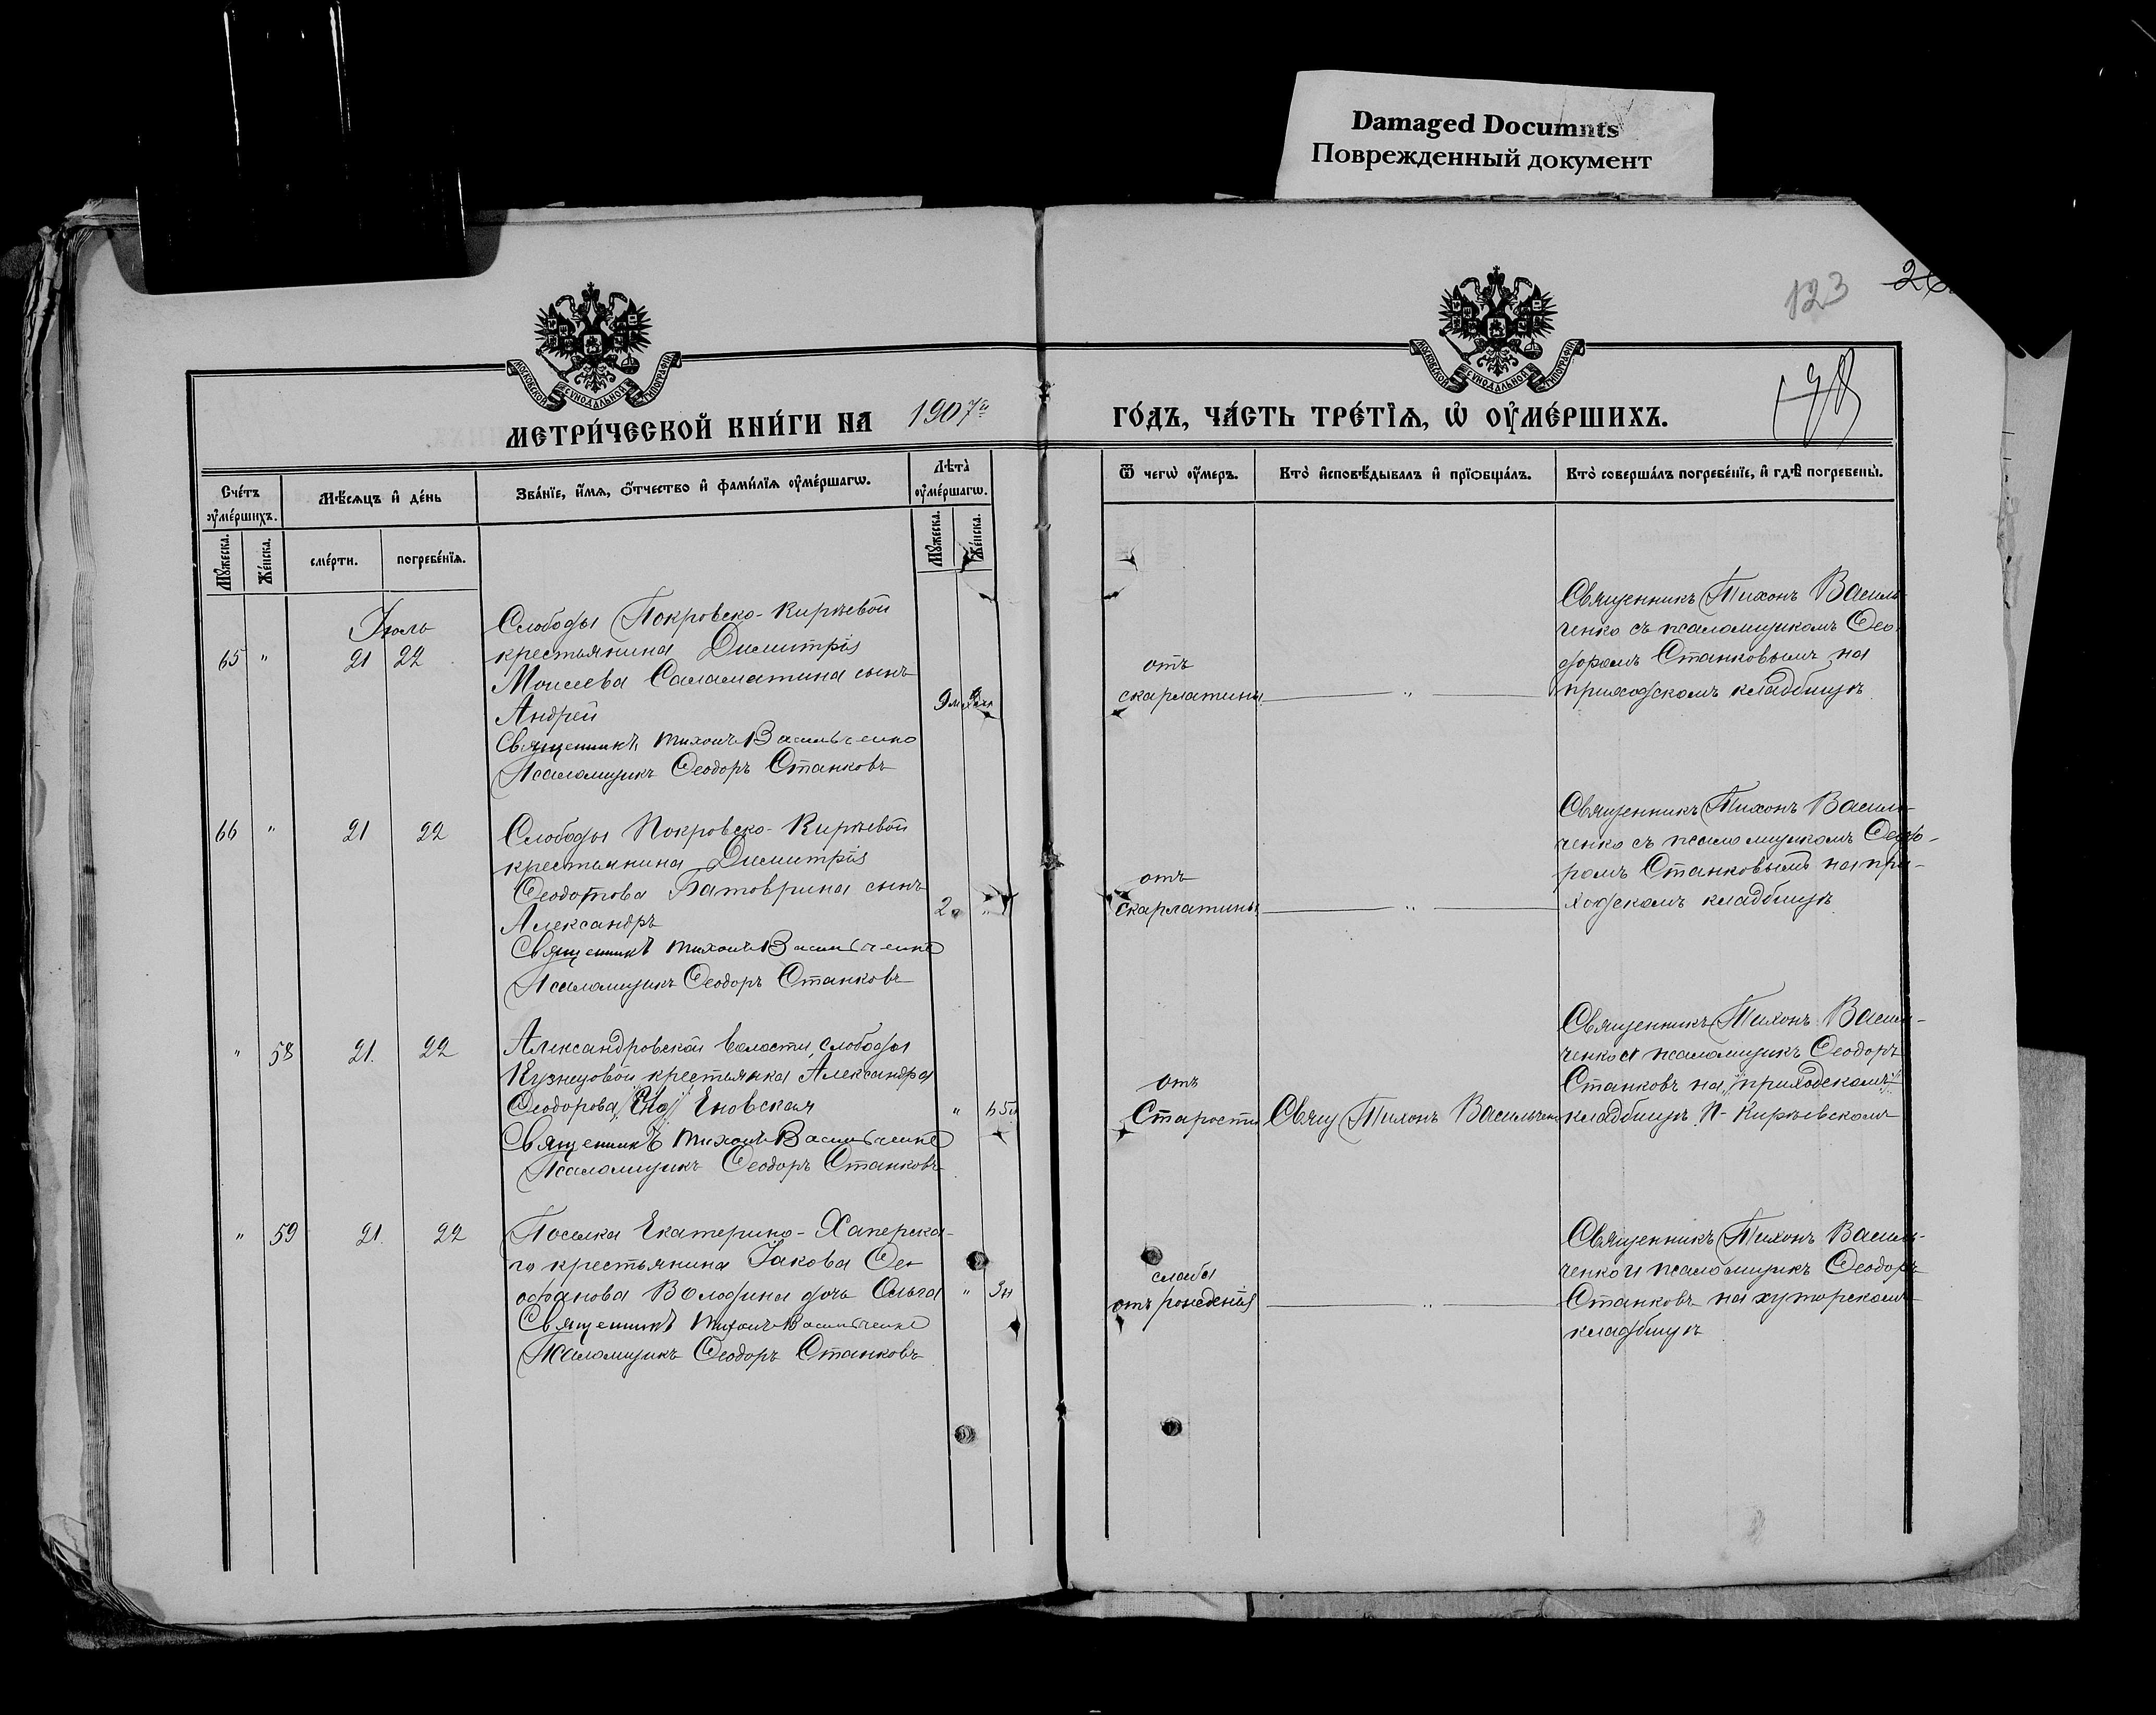 Damaged Documnts
Поврежденный документ
123
МОСКОВСКОЙ СѴНОДАЛЬНОЙ ТИПОГРАФІИ
МОСКОВСКОЙ СѴНОДАЛЬНОЙ ТИПОГРАФІИ
МЕТРИ́ЧЕСКОЙ КНИ́ГИ НА 1907й
ГО́ДЪ, ЧА́СТЬ ТРЕ́ТІѦ, Ѡ҆ ОУ҆МЕ́РШИХЪ.
Сче́тъ оу҆ме́ршихъ.
Мѣ́сѧцъ и҆ де́нь
Зва́нїе, и҆́мѧ, ѻ҆́тчество и҆ фами́лїѧ оу҆ме́ршагѡ.
Лѣта̀ оу҆ме́ршагѡ.
Ѿ чегѡ̀ оу҆́меръ.
Кто̀ и҆сповѣ́дывалъ и҆ прїѻбща́лъ.
Кто̀ соверша́лъ погребе́нїе, и҆ гдѣ̀ погребены̀.
Мꙋ́жеска.
Же́нска.
сме́рти.
погребе́нїѧ.
Мꙋ́жеска.
Же́нска.
Іюль
65 " 21 22
Слободы Покровско-Кирѣевой
крестьянина Димитрія
Моисеева Саламатина сынъ
Андрей
9 м.
Священникъ Тихонъ Васильченко
Псаломщикъ Ѳеодоръ Станковъ
отъ
скарлатины
"
Священникъ Тихонъ Василь-
ченко съ псаломщикомъ Ѳео-
доромъ Станковымъ на
приходскомъ кладбищѣ
66 " 21 22
Слободы Покровско-Кирѣевой
крестьянина Димитрія
Ѳеодотова Батоврина сынъ
Александръ
2 "
Священникъ Тихонъ Васильченко
Псаломщикъ Ѳеодоръ Станковъ
отъ
скарлатины
"
Священникъ Тихонъ Василь-
ченко съ псаломщикомъ Ѳеодо-
ромъ Станковымъ на при-
ходскомъ кладбищѣ
" 58 21. 22
Александровской волости, слободы
Кузнецовой крестьянка Александра
Ѳеодорова Еновская
" 65
Священникъ Тихонъ Васильченко
Псаломщикъ Ѳеодоръ Станковъ
отъ
Старости
Свящ Тихонъ Васильченко
Священникъ Тихонъ Василь-
ченко и псаломщикъ Ѳеодоръ
Станковъ на "приходскомъ"
кладбищѣ П-Кирѣевскомъ
" 59 21. 22
Поселка Екатерино-Хаперска-
го крестьянина Іакова Ѳео-
офанова Володина дочь Ольга
" 3 н
Священникъ Тихонъ Васильченко
Псаломщикъ Ѳеодоръ Станковъ
слаба
отъ рожденія
"
Священникъ Тихонъ Василь-
ченко и псаломщикъ Ѳеодоръ
Станковъ на хуторскомъ
кладбищѣ